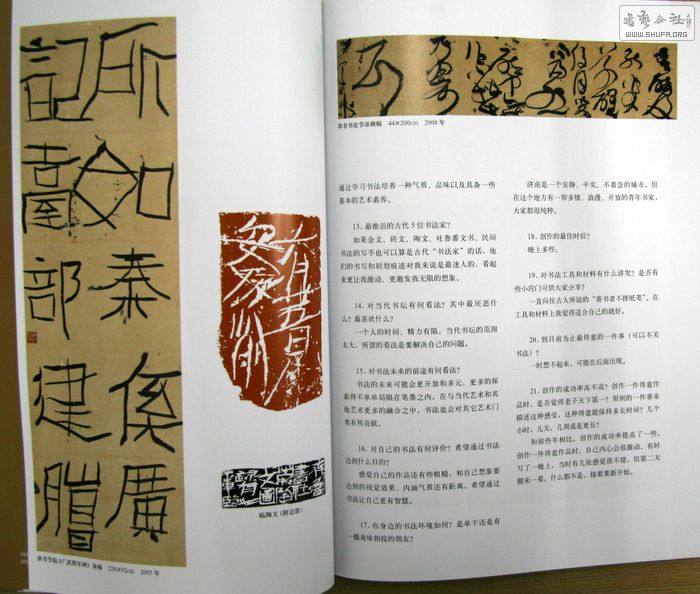 书艺公社
WWW.SHUFA.ORG
所如秦侯廣
記臺部建
隶书节临《广武将军碑》条幅 226×92cm 2005 年
临陶文(附边款)
草书书论节录横幅 44×200cm 2008 年
通过学习书法培养一种气质、品味以及具备一些
基本的艺术素养。
13. 最推崇的古代 5 位书法家?
如果金文、砖文、陶文、吐鲁番文书、民间
书法的写手也可以算是古代“书法家”的话,他
们的书写和刻划痕迹对我来说是最迷人的,看起
来更让我激动、更激发我无限的想象。
14. 对当代书坛有何看法?其中最厌恶什
么?最喜欢什么?
一个人的时间、精力有限,当代书坛的范围
太大,所谓的看法是要解决自己的问题。
15. 对书法未来的前途有何看法?
书法的未来可能会更开放和多元,更多的探
索将不单单局限在笔墨之内,在与当代艺术和其
他艺术更多的融合之中,书法也会对其它艺术门
类有所贡献。
16. 对自己的书法有何评价?希望通过书法
达到什么目的?
感觉自己的作品还有些粗糙,和自己想象要
达到的视觉效果、内涵气质还有距离,希望通过
书法让自己更有智慧。
17. 你身边的书法环境如何?是单干还是有
一撮臭味相投的朋友?
济南是一个安静、平实、不着急的城市,但
在这个地方有一帮多情、浪漫、开放的青年书家,
大家都很纯粹。
18. 创作的最佳时辰?
晚上多些。
19. 对书法工具和材料有什么讲究?是否有
些小窍门可供大家分享?
一直向往古人所说的“善书者不择纸笔”。在
工具和材料上我觉得适合自己的就好。
20. 到目前为止最得意的一件事(可以不关
书法)?
一时想不起来,可能在后面出现。
21. 创作的成功率高不高?创作一件得意作
品时,是否觉得老子天下第一?用别的一件事来
描述这种感受。这种得意能保持多长时间?几个
小时,几天、几周或是更长?
和前些年相比,创作的成功率提高了一些。
创作一件得意作品时,自己内心会很激动。有时
写了一晚上,当时有几张感觉很不错,但第二天
醒来一看,什么都不是。接着重新开始。